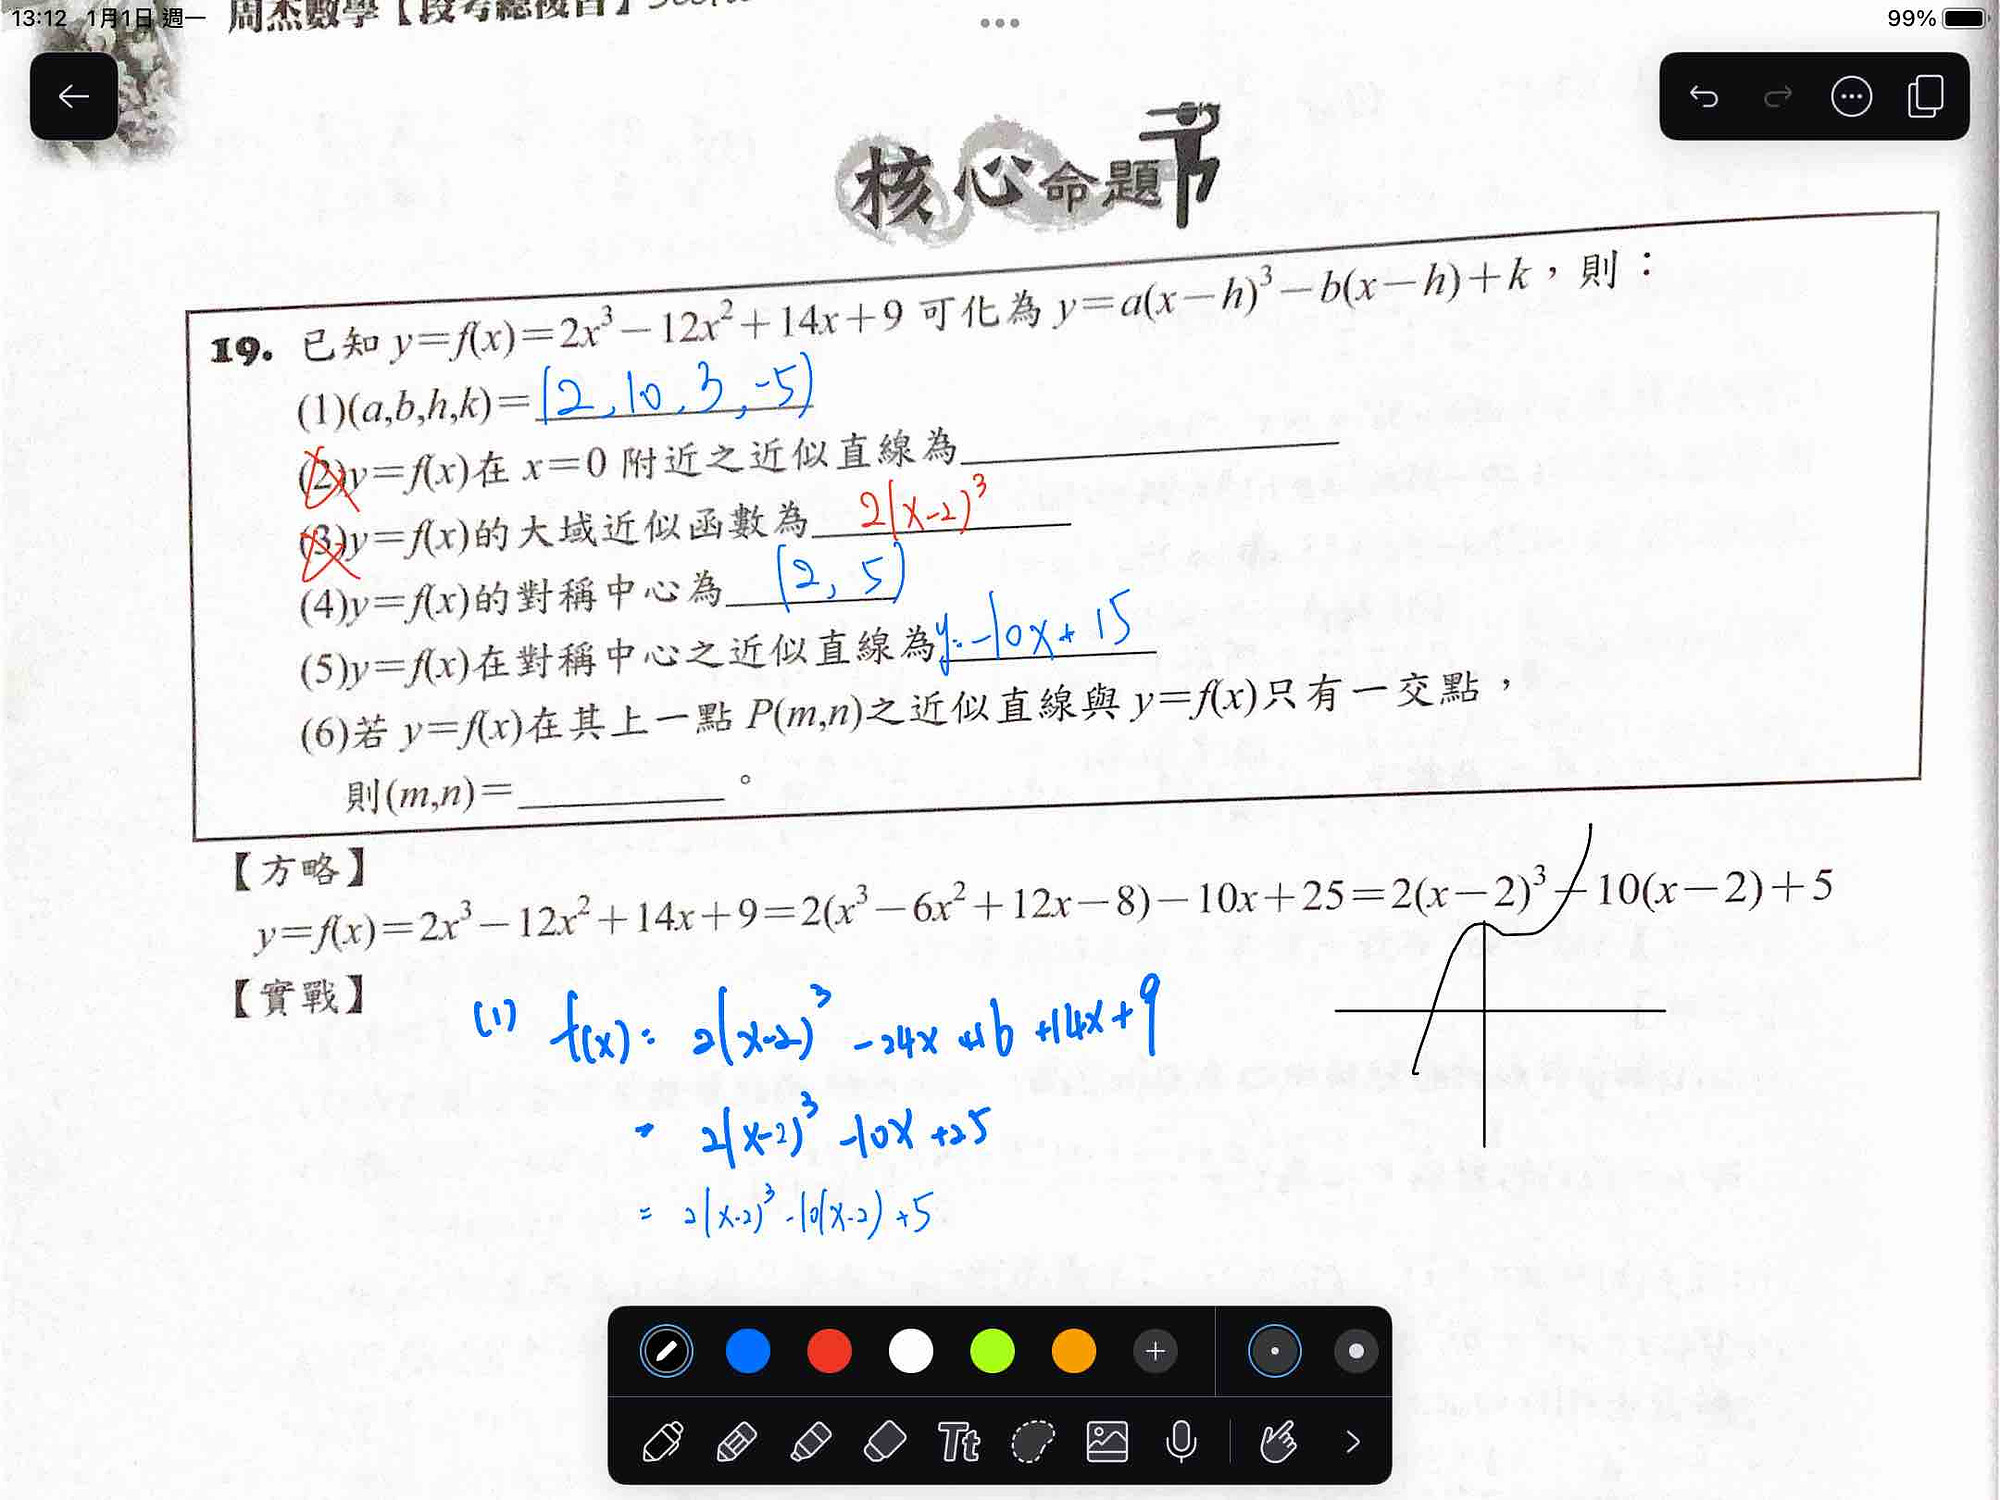 13:12 1月1日 週一
99%
周杰數學【段考總複習】
核心命題
19. 已知 y=f(x)=2x³-12x²+14x+9 可化為 y=a(x-h)³-b(x-h)+k，則：
(1)(a,b,h,k)= (2,10,3,-5)
(2)y=f(x)在 x=0 附近之近似直線為
(3)y=f(x)的大域近似函數為 2(x-2)³
(4)y=f(x)的對稱中心為 (2,5)
(5)y=f(x)在對稱中心之近似直線為 y=-10x+15
(6)若 y=f(x)在其上一點 P(m,n)之近似直線與 y=f(x)只有一交點，
則(m,n)= 。
【方略】
y=f(x)=2x³-12x²+14x+9=2(x³-6x²+12x-8)-10x+25=2(x-2)³-10(x-2)+5
【實戰】
(1) f(x)= 2(x-2)³ -24x +16 +14x+9
= 2(x-2)³ -10x +25
= 2(x-2)³ -10(x-2) +5
Tt